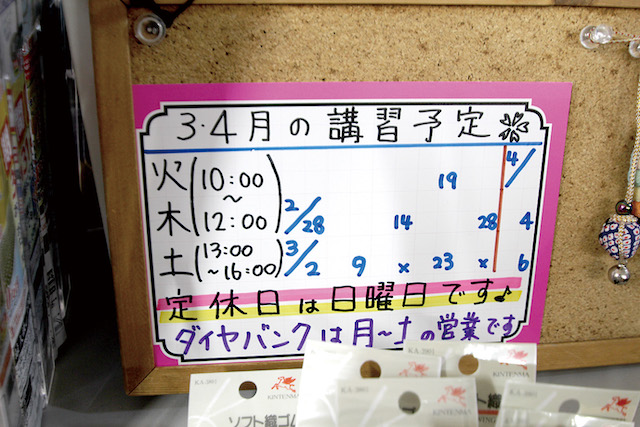 3・4月の講習予定
火 (10:00 19 4/
木 〜12:00) 2/28 14 28 4
土 (13:00〜16:00) 3/2 9 × 23 × 6
定休日は日曜日です♪
ダイヤバンクは月〜土の営業です
KA-2051
KINTENMA
ソフト織ゴム
KINTENMA
KINTENMA
KINTENMA